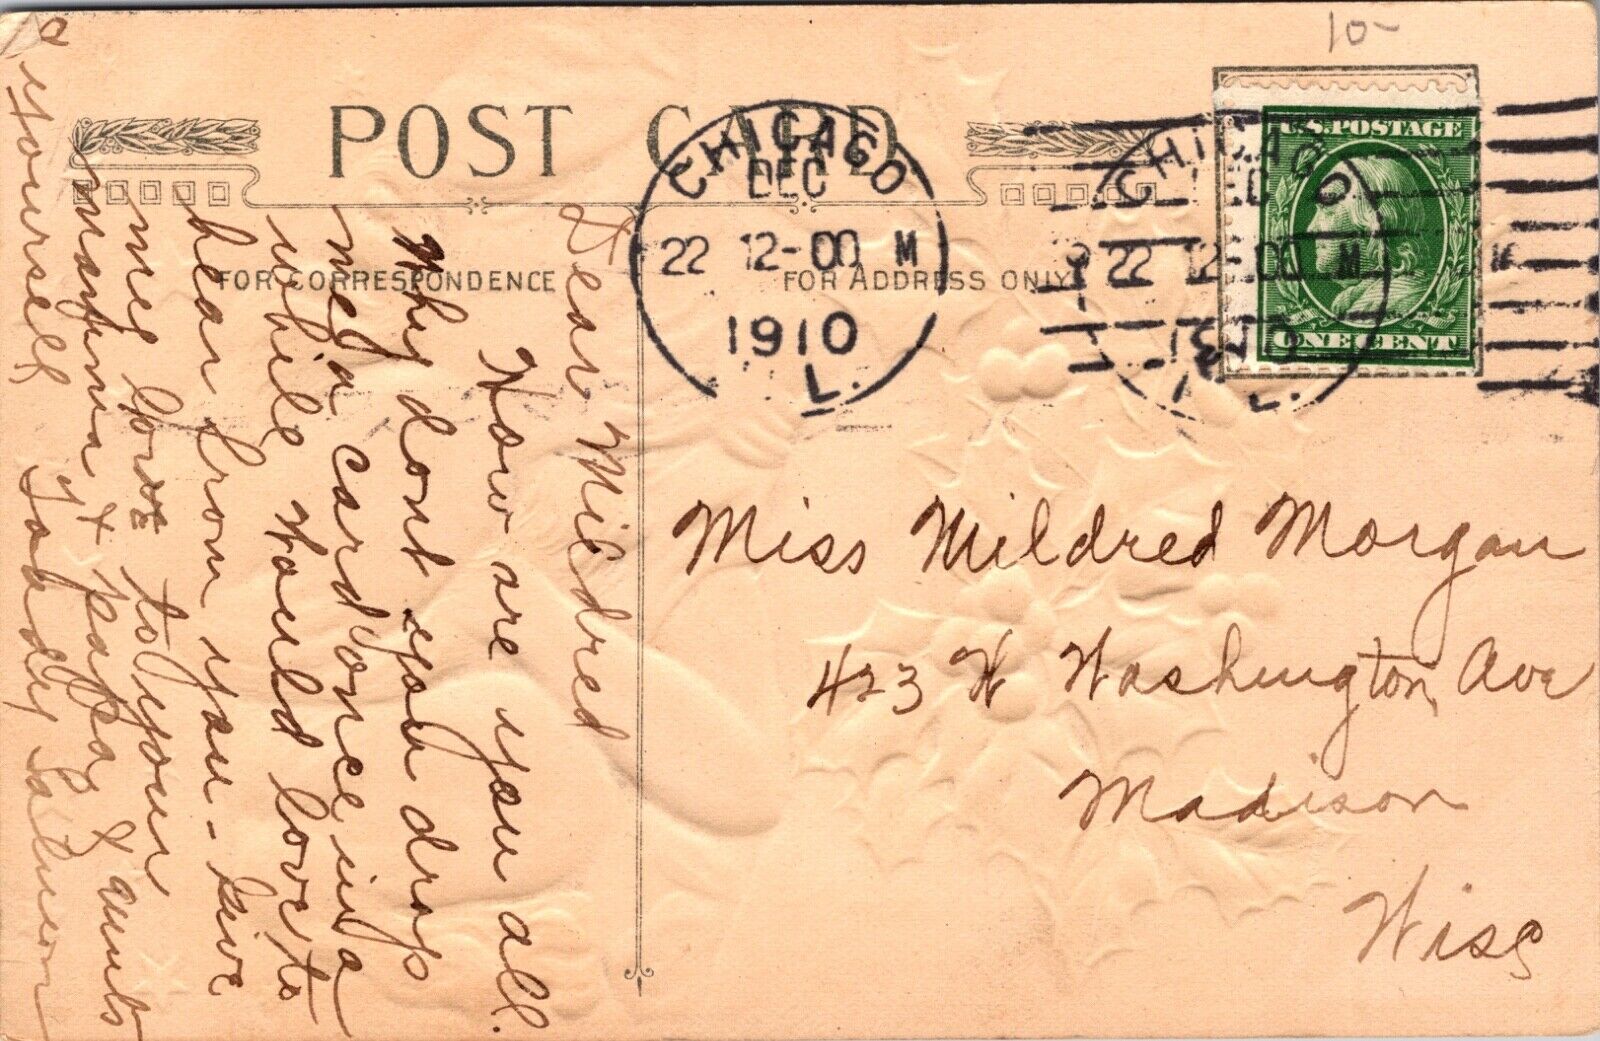 10-
POST CARD
FOR CORRESPONDENCE
FOR ADDRESS ONLY
CHICAGO
DEC
22 12-00 M
1910
L.
CHICAGO
22 12-00 M
L.
U.S. POSTAGE
ONE CENT
Dear Mildred
How are you all.
Why dont you drop
me a card once in a
while Would love to
hear from you - Give
my love to your
mamma & papa & aunts
& yourself
Miss Mildred Morgan
423 W Washington Ave
Madison
Wisc